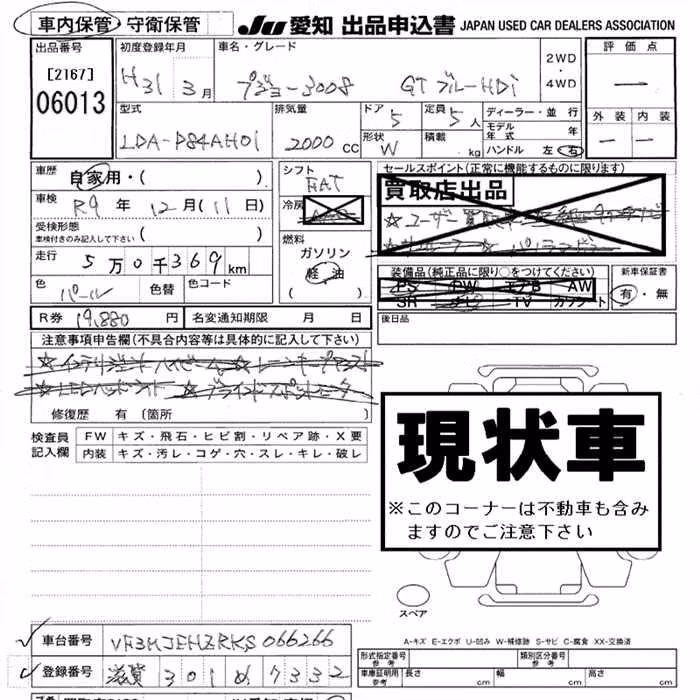 車内保管・守衛保管 JU 愛知 出品申込書 JAPAN USED CAR DEALERS ASSOCIATION
出品番号 初度登録年月 車名・グレード 2WD ・ 4WD 評価点
[2167] H31 3月 プジョー3008 GTブルーHDi
06013
型式 排気量 ドア 5 定員 5人 ディーラー・並行 外装 内装
LDA-P84AH01 2000cc 形状 W 積載 kg モデル年式 年
ハンドル 左 右
車歴 自家用・( ) シフト FAT セールスポイント(正常に機能するものに限ります)
買取店出品
車検 R9年 12月(11日) 冷房
受検形態 ( )
車検付きのみ記入して下さい
燃料 ガソリン 軽油 ( )
走行 5万0千369km
装備品(純正品に限り○をつけてください) 新車保証書
PS PW エアB AW 有・無
SR ナビ TV カワシート
色 パール 色替 色コード
後日品
R券 19,880円 名変通知期限 月 日
注意事項申告欄(不具合内容等は具体的に記入して下さい)
☆インテリジェントハイビーム ☆レーンキープアシスト
☆LEDヘッドライト ☆ブラインドスポットモニター
修復歴 有 [箇所 ]
検査員記入欄 FW キズ・飛石・ヒビ割・リペア跡・X要
内装 キズ・汚レ・コゲ・穴・スレ・キレ・破レ
現状車
※このコーナーは不動車も含み
ますのでご注意下さい
スペア
A-キズ E-エクボ U-凹み W-補修跡 S-サビ C-腐食 XX-交換済
車台番号 VF3MJEHZRKS066266
登録番号 滋賀 301 め 7332
形式指定番号 参考 類別区分番号 参考
車庫証明用 参考 長さ cm 幅 cm 高さ cm